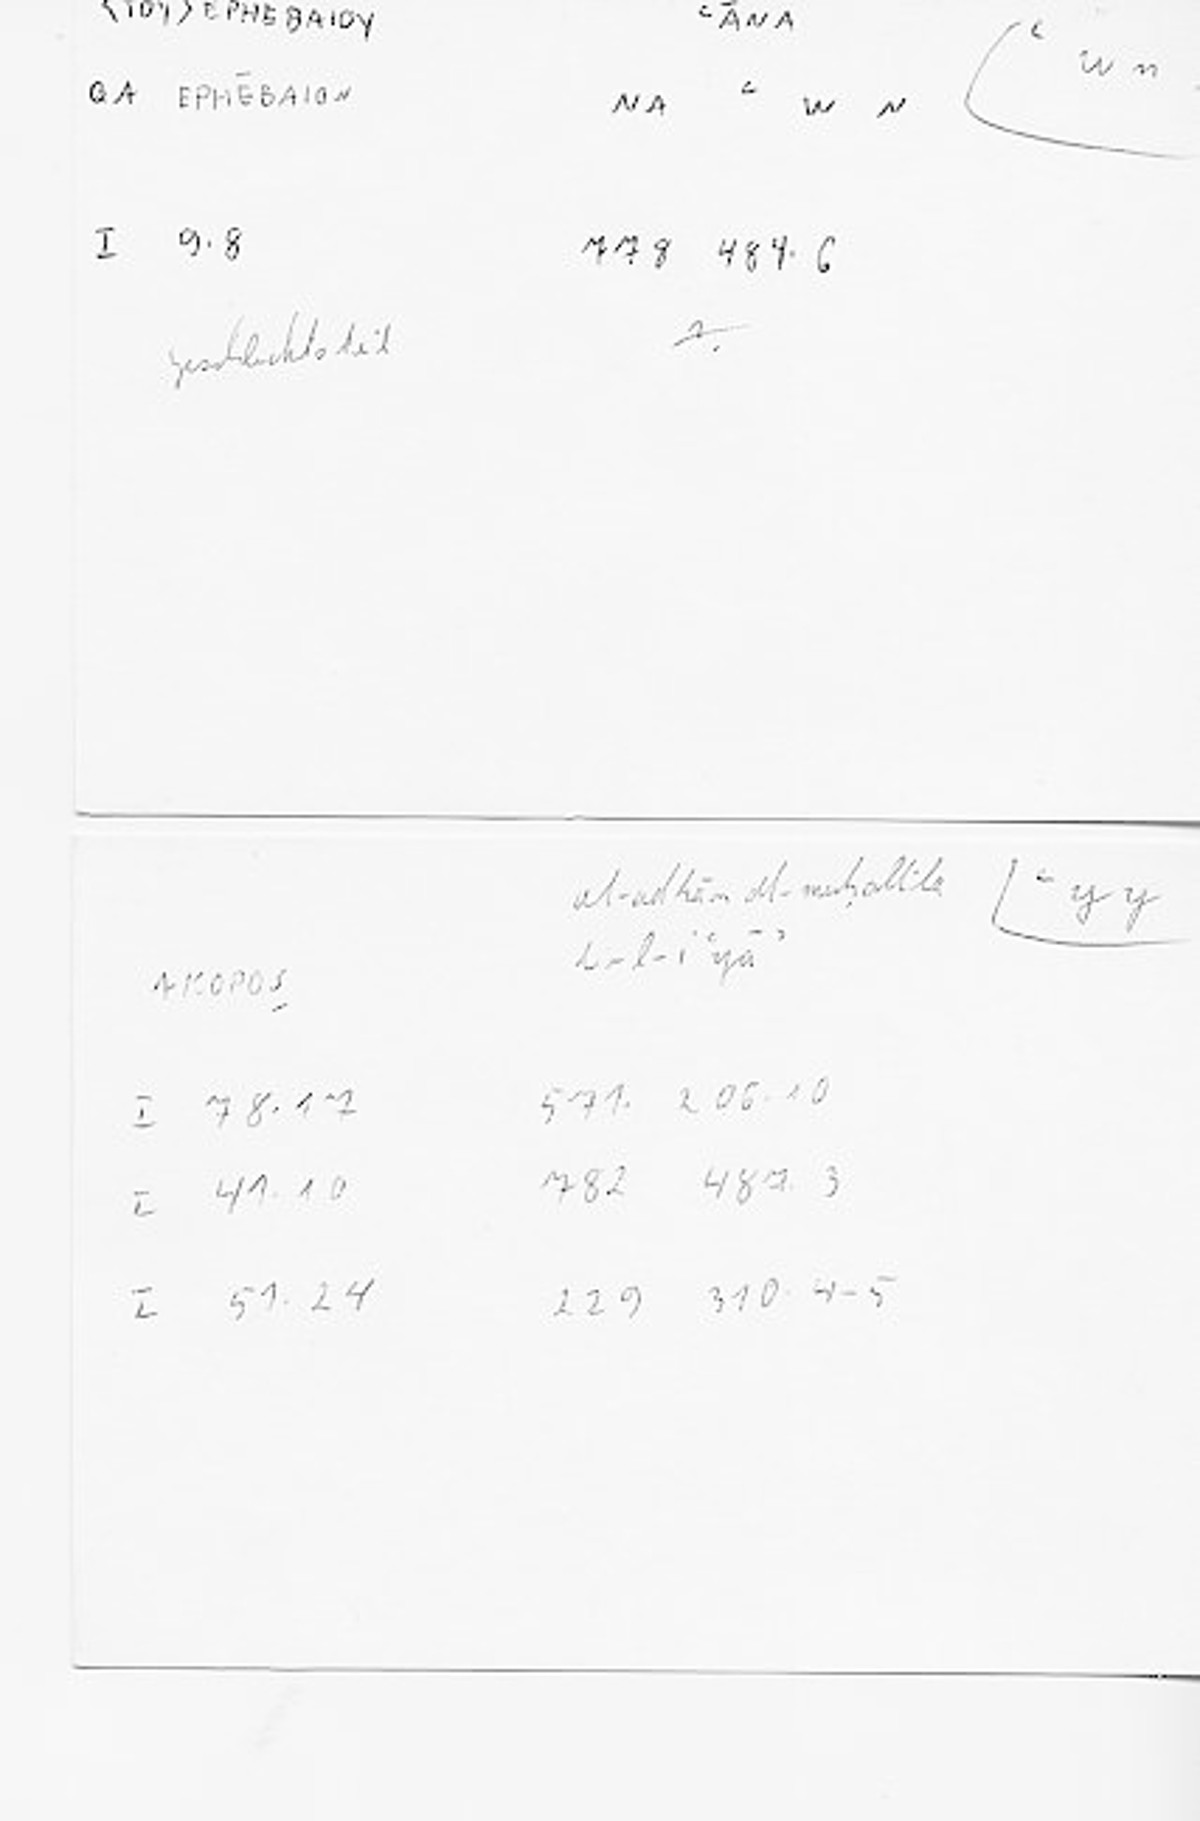 <TOY> EPHEBAIOY ʿĀNA
(ʿ w n
QA EPHĒBAION NA ʿ W N
I 9.8 778 484.6
geschlechtsteil
al-adhān al-muḥallila (ʿ y y
AKOPOS li-l-iʿyāʾ
I 78.17 571. 206.10
I 41.10 782 487.3
I 51.24 229 310.4-5